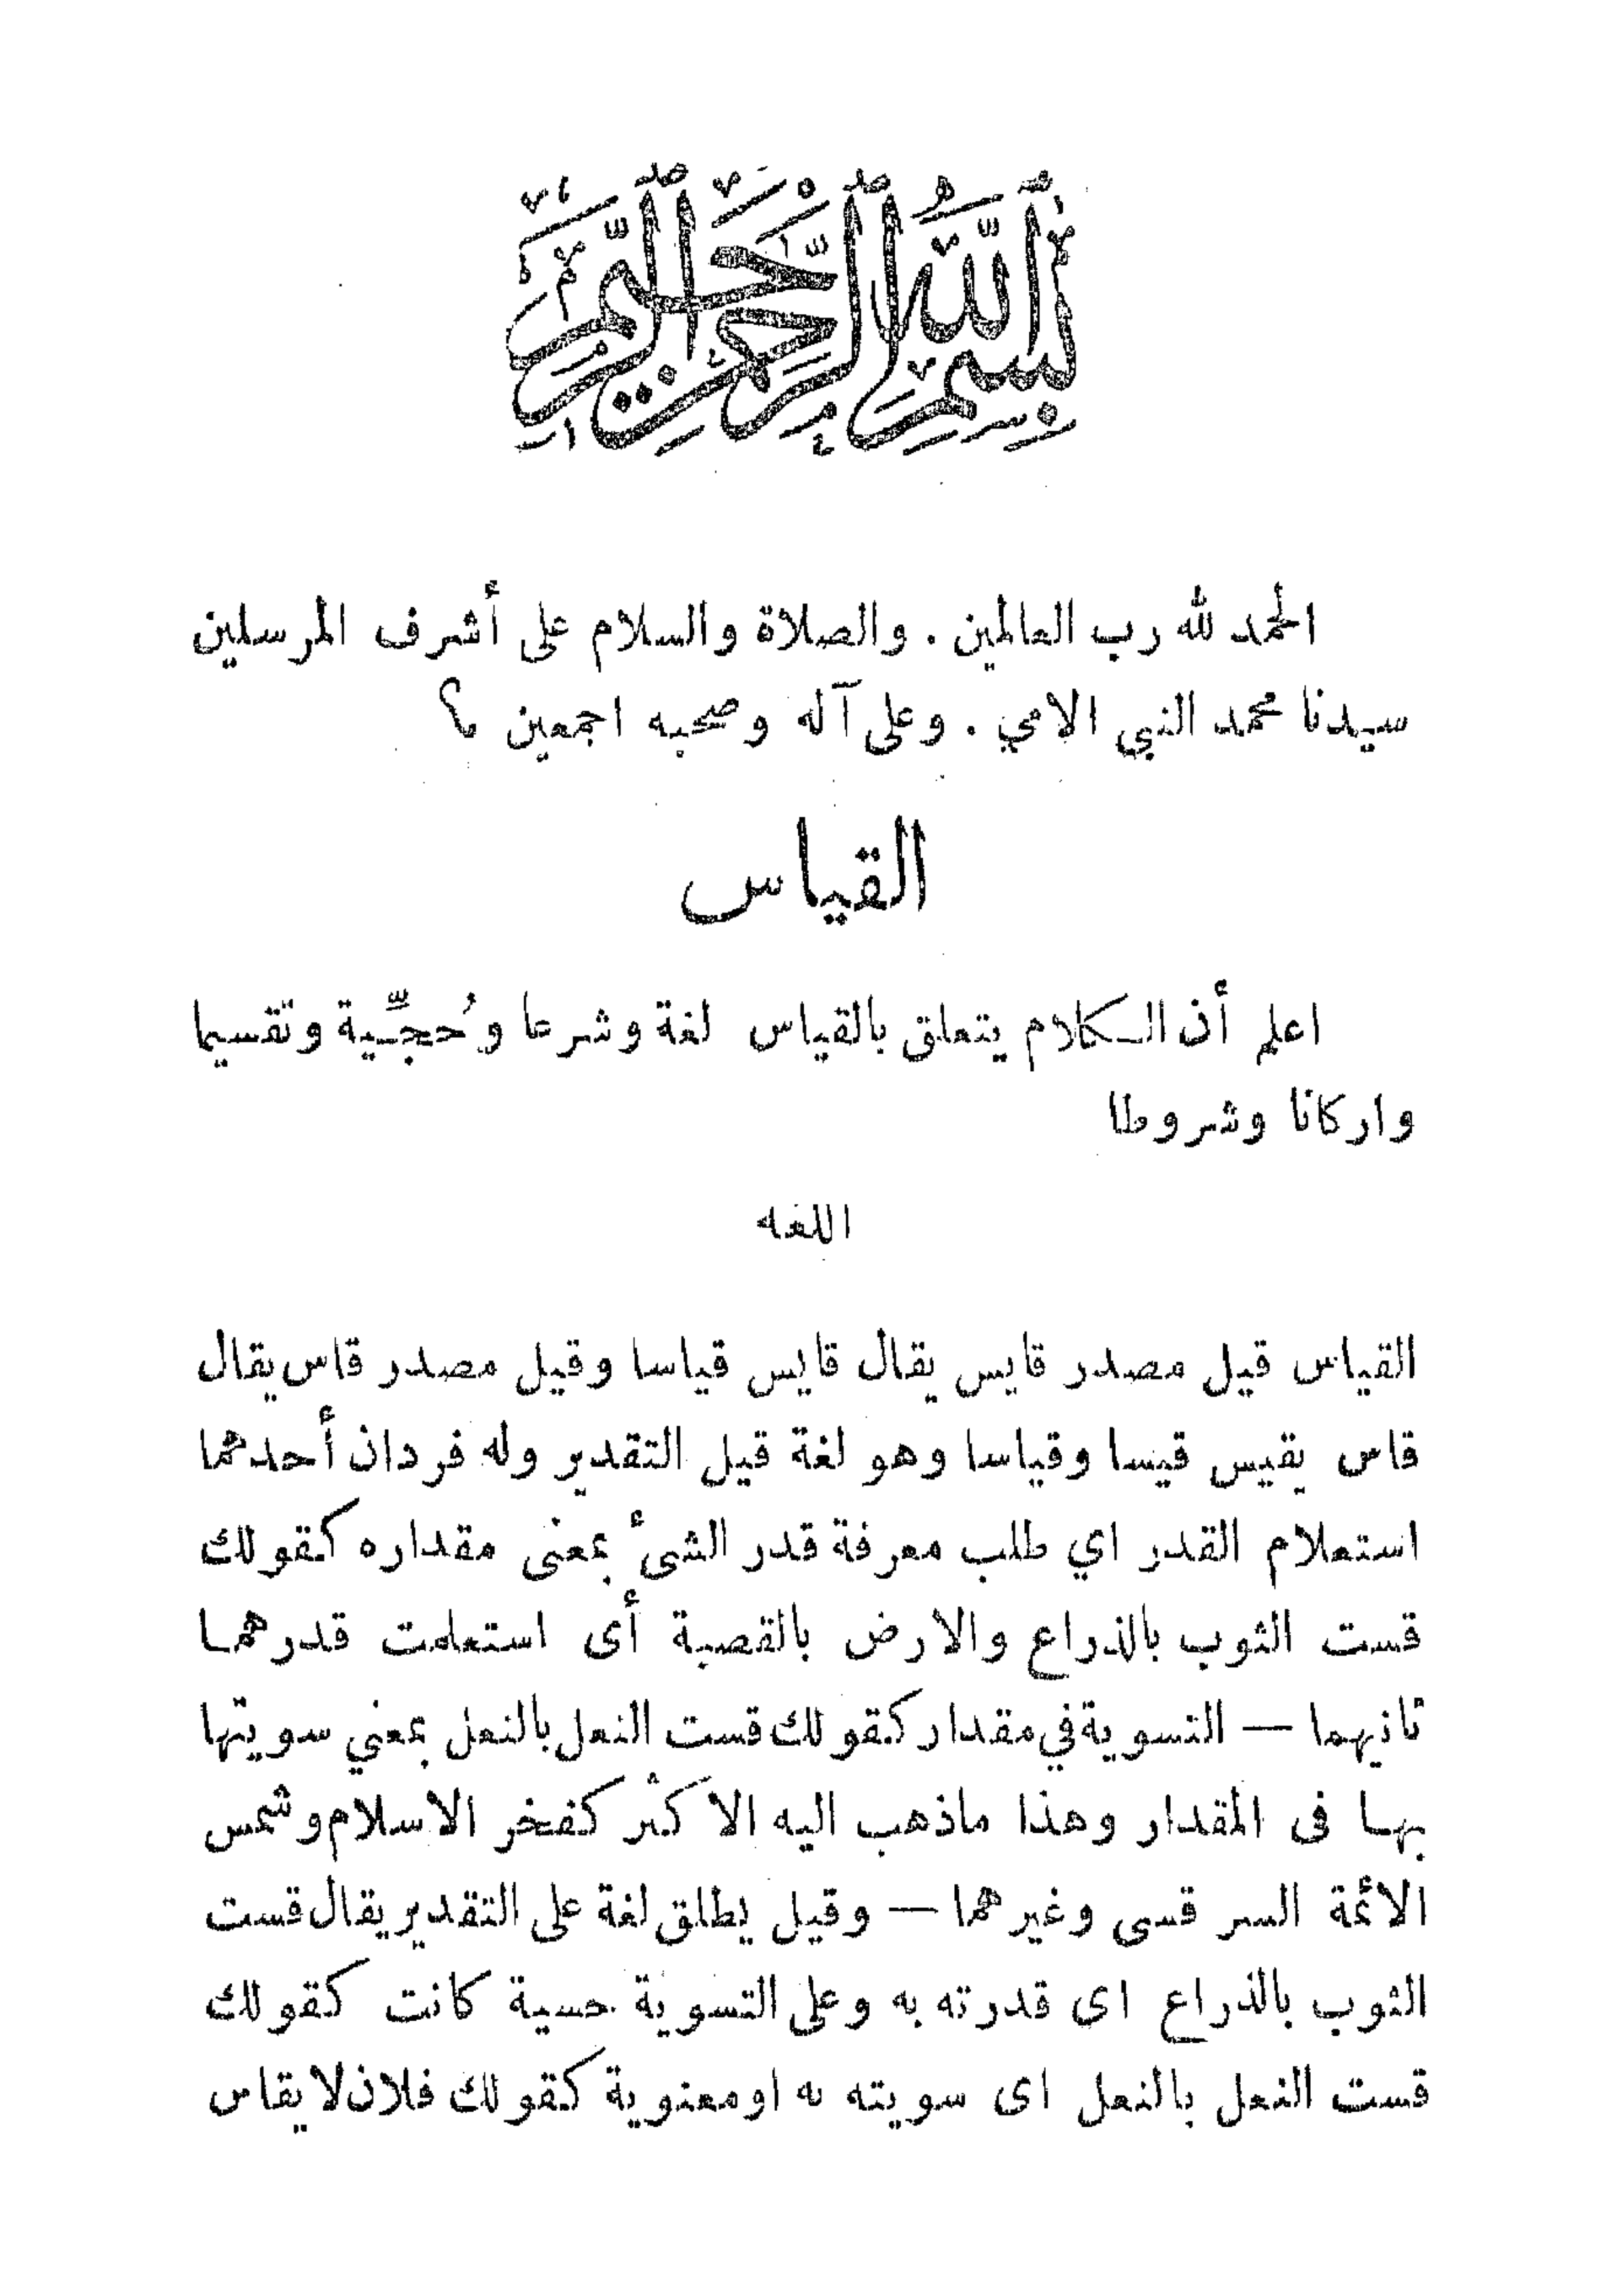 بسم الله الرحمن الرحيم
الحمد لله رب العالمين . والصلاة والسلام على أشرف المرسلين
سيدنا محمد النبي الامي . وعلى آله وصحبه اجمعين
القياس
اعلم أن الكلام يتعلق بالقياس لغة وشرعا وحُجِّية وتقسيما
واركانا وشروطا
اللغه
القياس قيل مصدر قايس يقال قايس قياسا وقيل مصدر قاس يقال
قاس يقيس قيسا وقياسا وهو لغة قيل التقدير وله فردان أحدهما
استعلام القدر اي طلب معرفة قدر الشئ بمعنى مقداره كقولك
قست الثوب بالذراع والارض بالقصبة أى استعلمت قدرهما
ثانيهما — التسوية في مقدار كقولك قست النعل بالنعل بمعني سويتها
بها فى المقدار وهذا ماذهب اليه الاكثر كفخر الاسلام وشمس
الائمة السرقسى وغيرهما — وقيل يطلق لغة على التقدير يقال قست
الثوب بالذراع اى قدرته به وعلى التسوية حسية كانت كقولك
قست النعل بالنعل اى سويته به او معنوية كقولك فلان لا يقاس